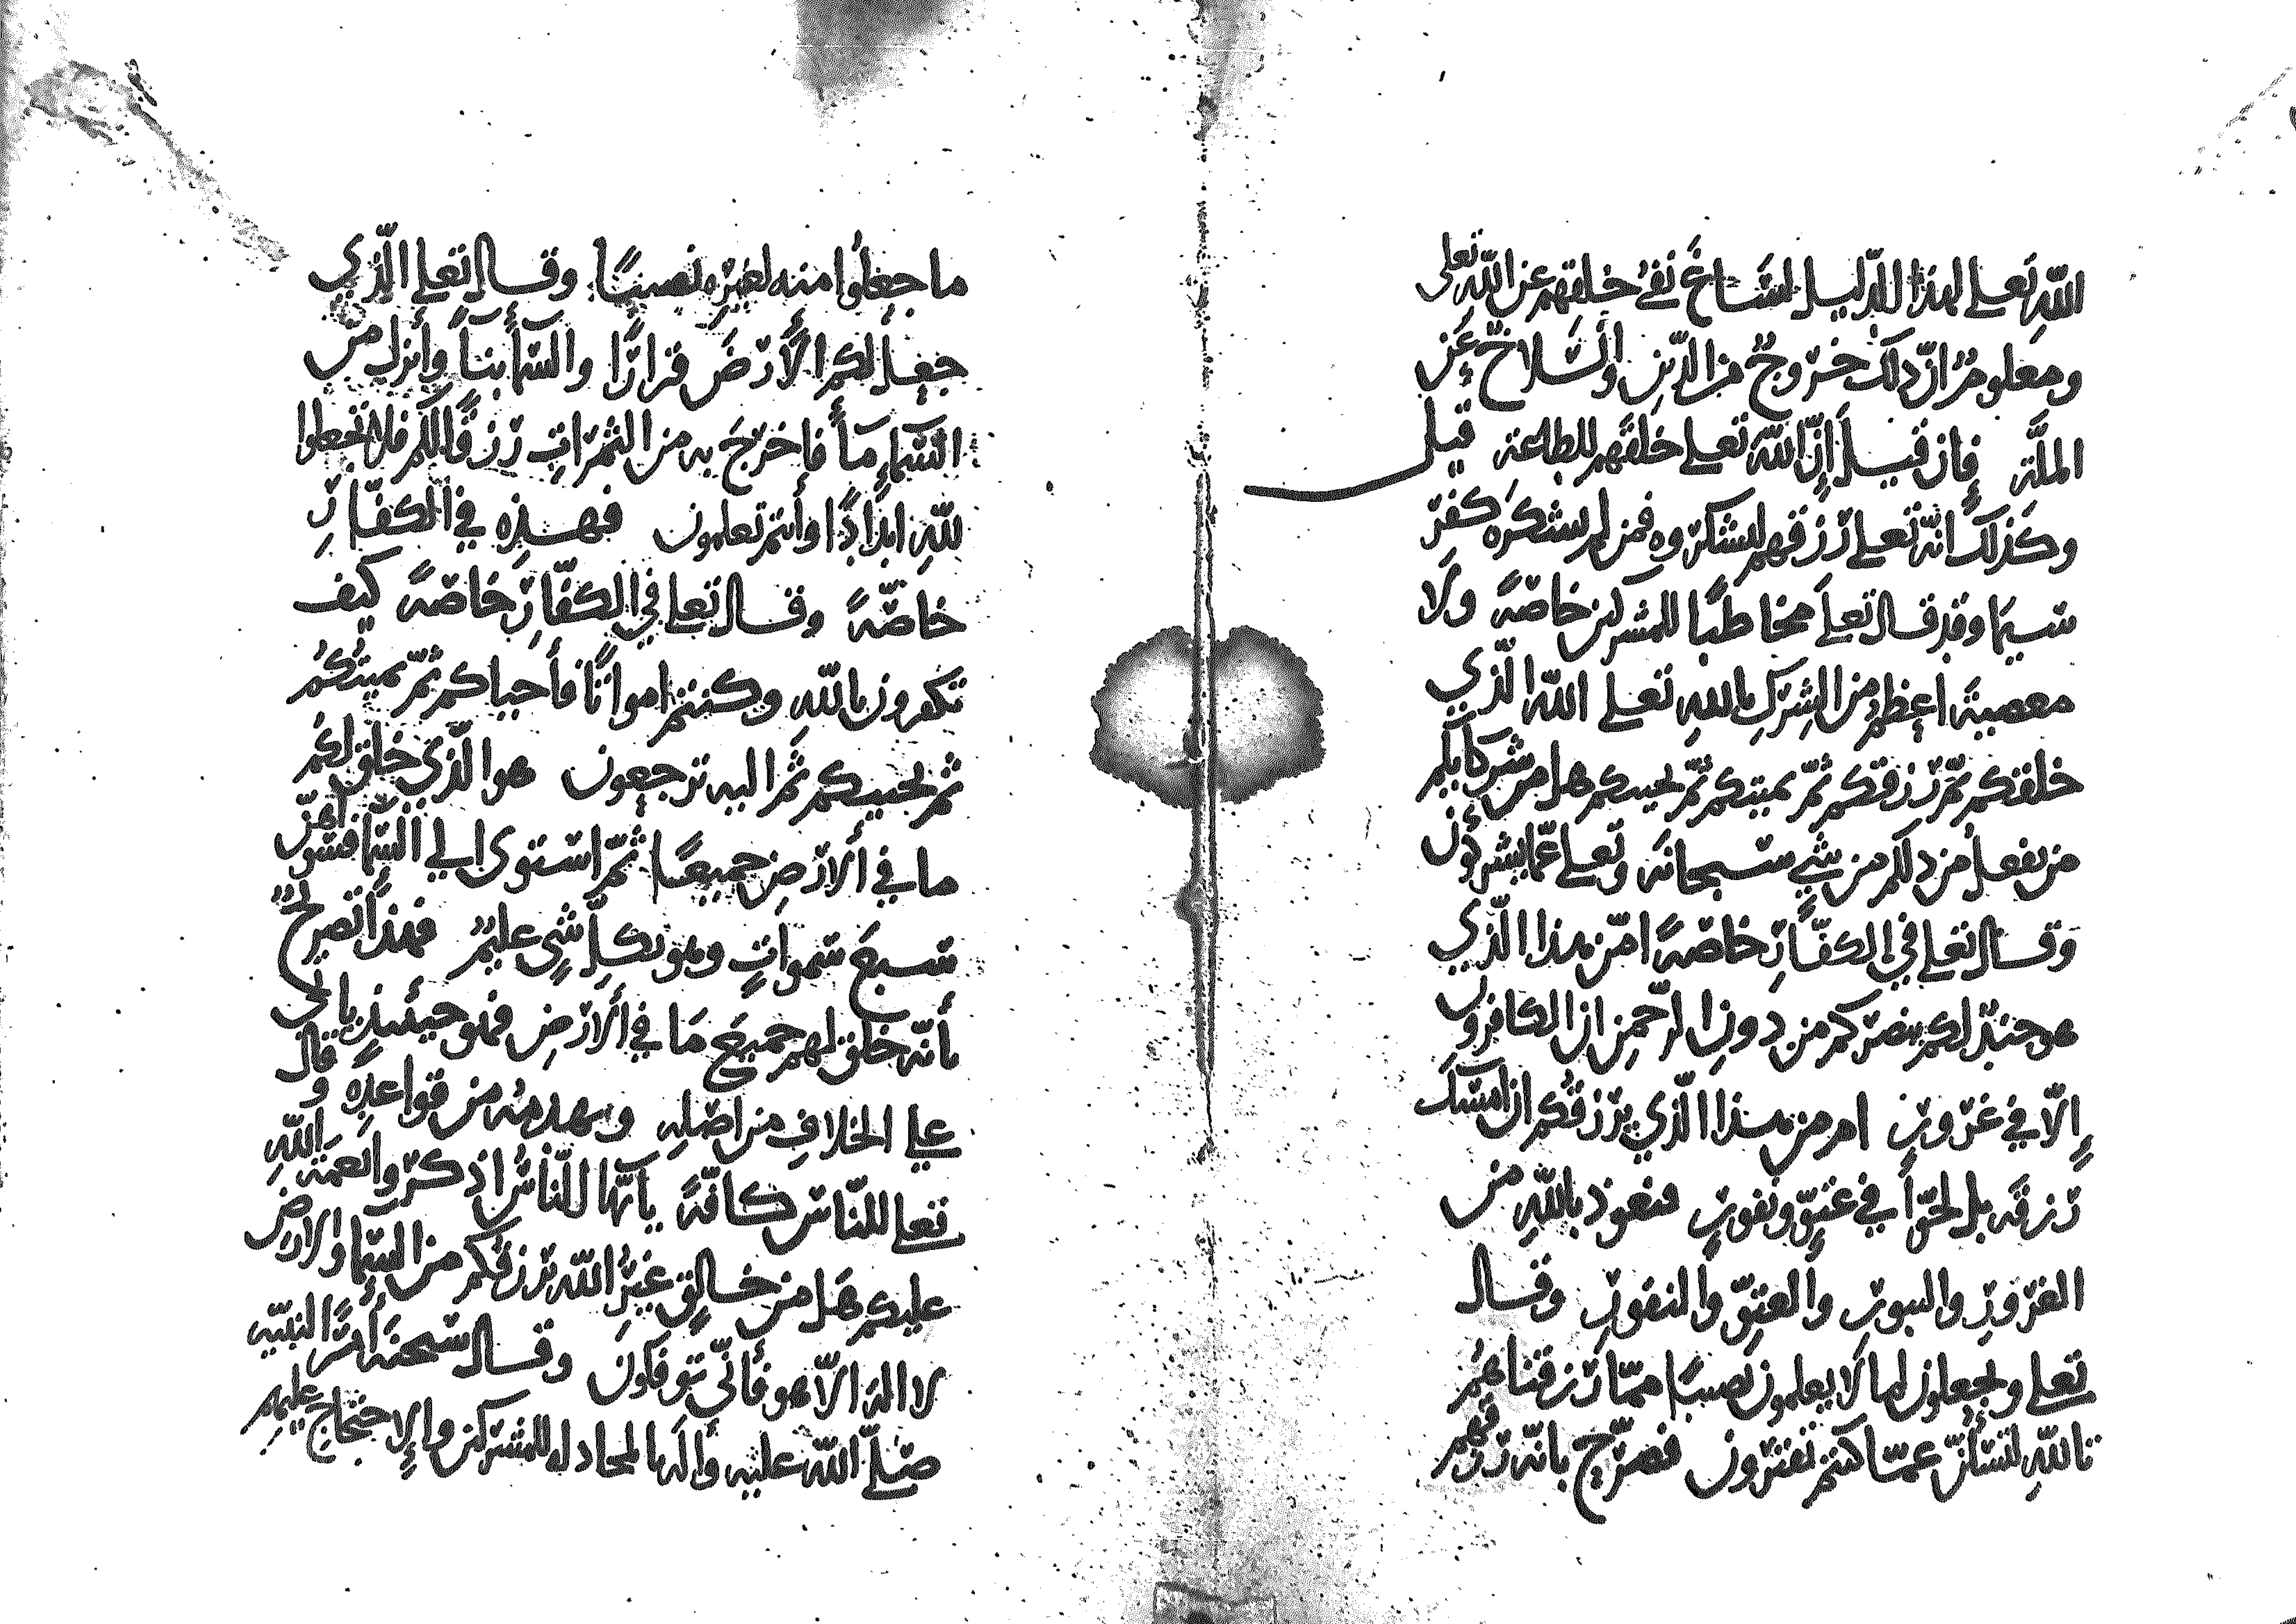 الله تعلى لهذا الدليل لساغ نفي خلقهم عن الله تعلى
ومعلوم ان ذلك خروج من الدين وانسلاخ عن
الملة فان قيل إن الله تعلى خلقهم للطاعة قيل
وكذلك انه تعلى رزقهم ليشكروه فمن لم يشكره كفر
سيما وقد قال تعلى مخاطبا للمشركين خاصة ولا
معصية اعظم من الشرك بالله تعلى الله الذي
خلقكم ثم رزقكم ثم يميتكم ثم يحييكم هل من شركائكم
من يفعل من ذلكم من شيء سبحانه وتعلى عما يشركون
وقال تعلى في الكفار خاصة امن هذا الذي
هو جند لكم ينصركم من دون الرحمن ان الكافرون
إلا في غرور ام من هذا الذي يرزقكم ان امسك
رزقه بل لجوا في عتو ونفور فنعوذ بالله من
الغرور والبور والعتو والنفور وقال
تعلى ويجعلون لما لا يعلمون نصيبا مما رزقناهم
تالله لتسألن عما كنتم تفترون فصرح بانه رزقهم
ما جعلوا منه لغيره نصيبا وقال تعلى الذي
جعل لكم الأرض قرارا والسماء بناء وأنزل من
السماء ماء فاخرج به من الثمرات رزقا لكم فلا تجعلوا
لله اندادا وأنتم تعلمون فهذه في الكفار
خاصة وقال تعلى في الكفار خاصة كيف
تكفرون بالله وكنتم امواتا فأحياكم ثم يميتكم
ثم يحييكم ثم اليه ترجعون هو الذي خلق لكم
ما في ألارض جميعا ثم استوى الي السماء فسواهن
سبع سموات وهو بكل شيء عليم فهذا تصريح
بأنه خلق لهم جميع ما في ألارض فهو حينئذ يأتي
على الخلاف من اصله ويهدمه من قواعده وقال
تعلى للناس كافة يأيها الناس اذكروا نعمة الله
عليكم هل من خالق غير الله يرزقكم من السماء والارض
لا اله الا هو فأنى توفكون وقال سبحنه أمرا لنبيه
صلى الله عليه وألها لمجادله للمشركين والإحتجاج عليهم